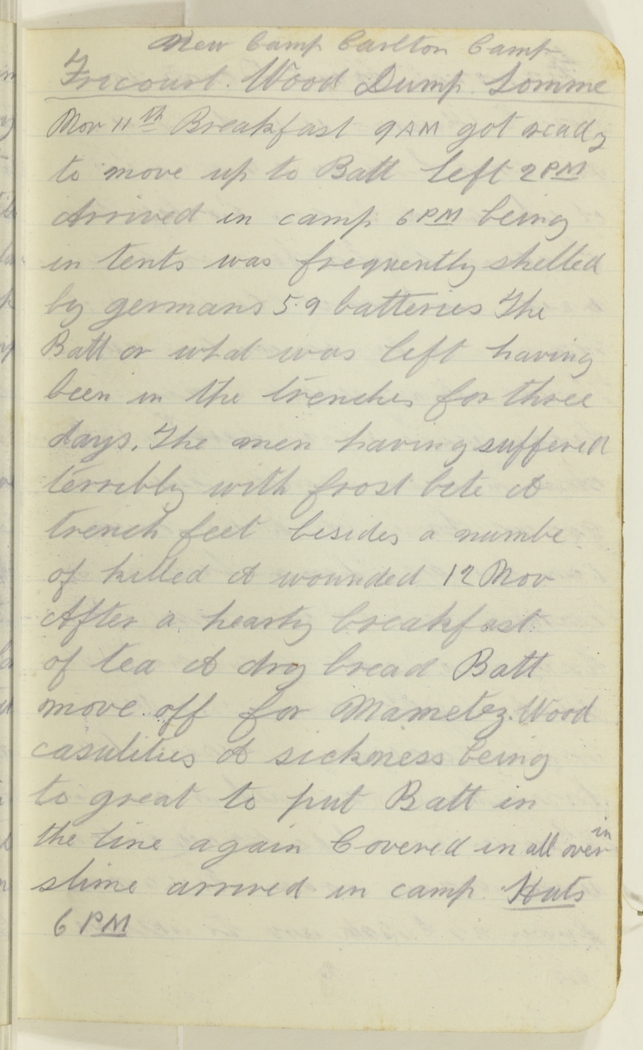 New Camp Carlton Camp
Fricourt. Wood Dump. Somme
Nov 11th Breakfast 9AM got ready
to move up to Batt left 2PM
Arrived in camp 6PM being
in tents was frequently shelled
by germans 5.9 batteries The
Batt or what was left having
been in the trenches for three
days. The men having suffered
terribly with frost bite &
trench feet besides a numbe
of killed & wounded 12 Nov
After a hearty breakfast
of tea & dry bread Batt
move off for Mametz. Wood
casulities & sickness being
to great to put Batt in
the line again Covered in all over in
slime arrived in camp Huts
6 PM